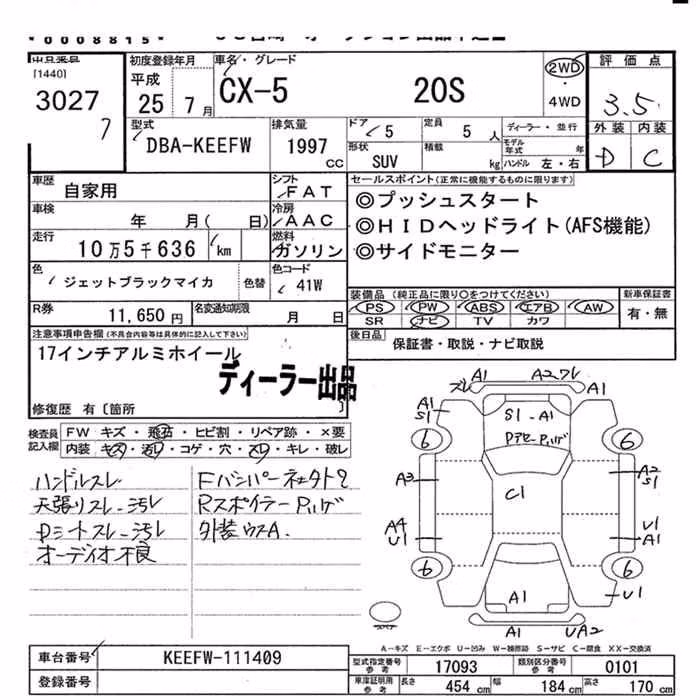 "0008815"
[1440]
3027
7
初度登録年月
平成
25 7月
車名・グレード
CX-5 20S
2WD
・
4WD
評価点
3.5
外装 内装
D C
型式
DBA-KEEFW
排気量
1997
cc
ドア
5
定員
5 人
ディーラー・並行
形状
SUV
積載
kg
モデル年式 年
ハンドル 左・右
車歴
自家用
シフト
FAT
車検
年 月( 日)
冷房
AAC
走行
10万5千636 km
燃料
ガソリン
色
ジェットブラックマイカ
色替
色コード
41W
R券
11,650円
名変通知期限
月 日
セールスポイント(正常に機能するものに限ります)
◎プッシュスタート
◎HIDヘッドライト(AFS機能)
◎サイドモニター
装備品(純正品に限り○をつけてください)
PS PW ABS エアB AW
SR ナビ TV カワ
新車保証書
有・無
後日品
保証書・取説・ナビ取説
注意事項申告欄(不具合内容等は具体的に記入して下さい)
17インチアルミホイール
ディーラー出品
修復歴 有〔箇所 〕
検査員記入欄
FW キズ・飛石・ヒビ割・リペア跡・×要
内装 キズ・汚レ・コゲ・穴・スレ・キレ・破レ
ハンドルスレ
天張リスレ・汚レ
Dシートスレ・汚レ
オーディオ不良
Rスポイラー
外装ウスA
ズレ A1 A2ワレ
A1
S1
A1
S1・A1
6
6
A3
C1
A2
S1
A4
U1
U1
A1
6
6
A1
U1
A1 UA2
スペア
A-キズ E-エクボ U-凹み W-補修跡 S-サビ C-腐食 XX-交換済
車台番号
KEEFW-111409
登録番号
型式指定番号
参考
17093
類別区分番号
参考
0101
車庫証明用
参考
長さ 454 cm
幅 184 cm
高さ 170 cm